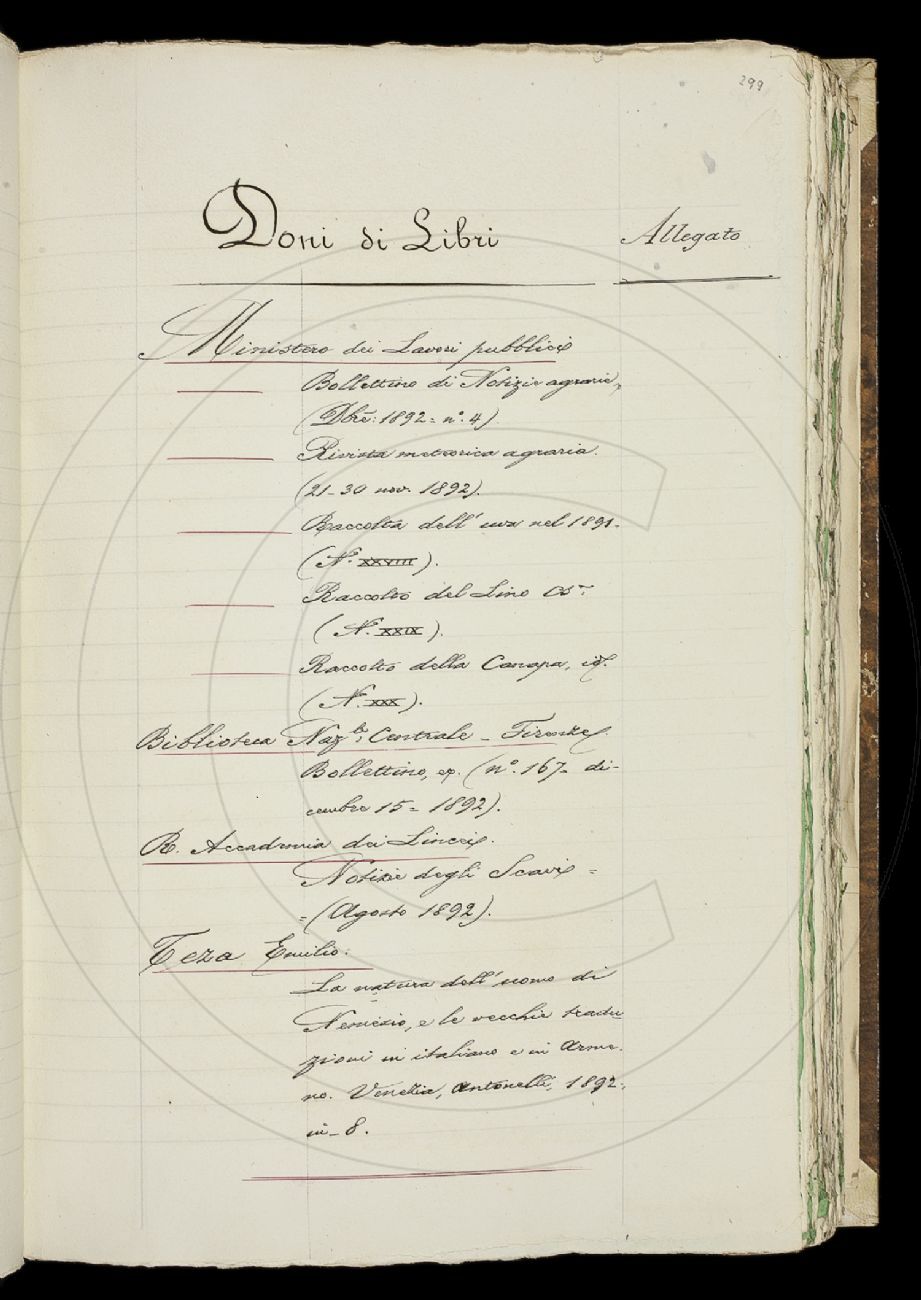 299
Doni di Libri
Allegato
Ministero dei Lavori pubblici
Bollettino di Notizie agrarie,
(Dbre: 1892 = n.° 4).
Rivista meteorica agraria.
(21-30 nov. 1892).
Raccolta dell' uva nel 1891.
(N. XXVIII).
Raccolto del Lino
(N. XXIX).
Raccolto della Canapa, id.
(N. XXX).
Biblioteca Naz.le Centrale - Firenze
Bollettino, (n.° 167= di-
cembre 15 = 1892).
R. Accademia dei Lincei.
Notizie degli Scavi =
= (Agosto 1892).
Teza Emilio:
La natura dell' uomo di
Nemesio, e le vecchie tradu-
zioni in italiano e in Arme-
no. Venezia, Antonelli, 1892.
in-8.